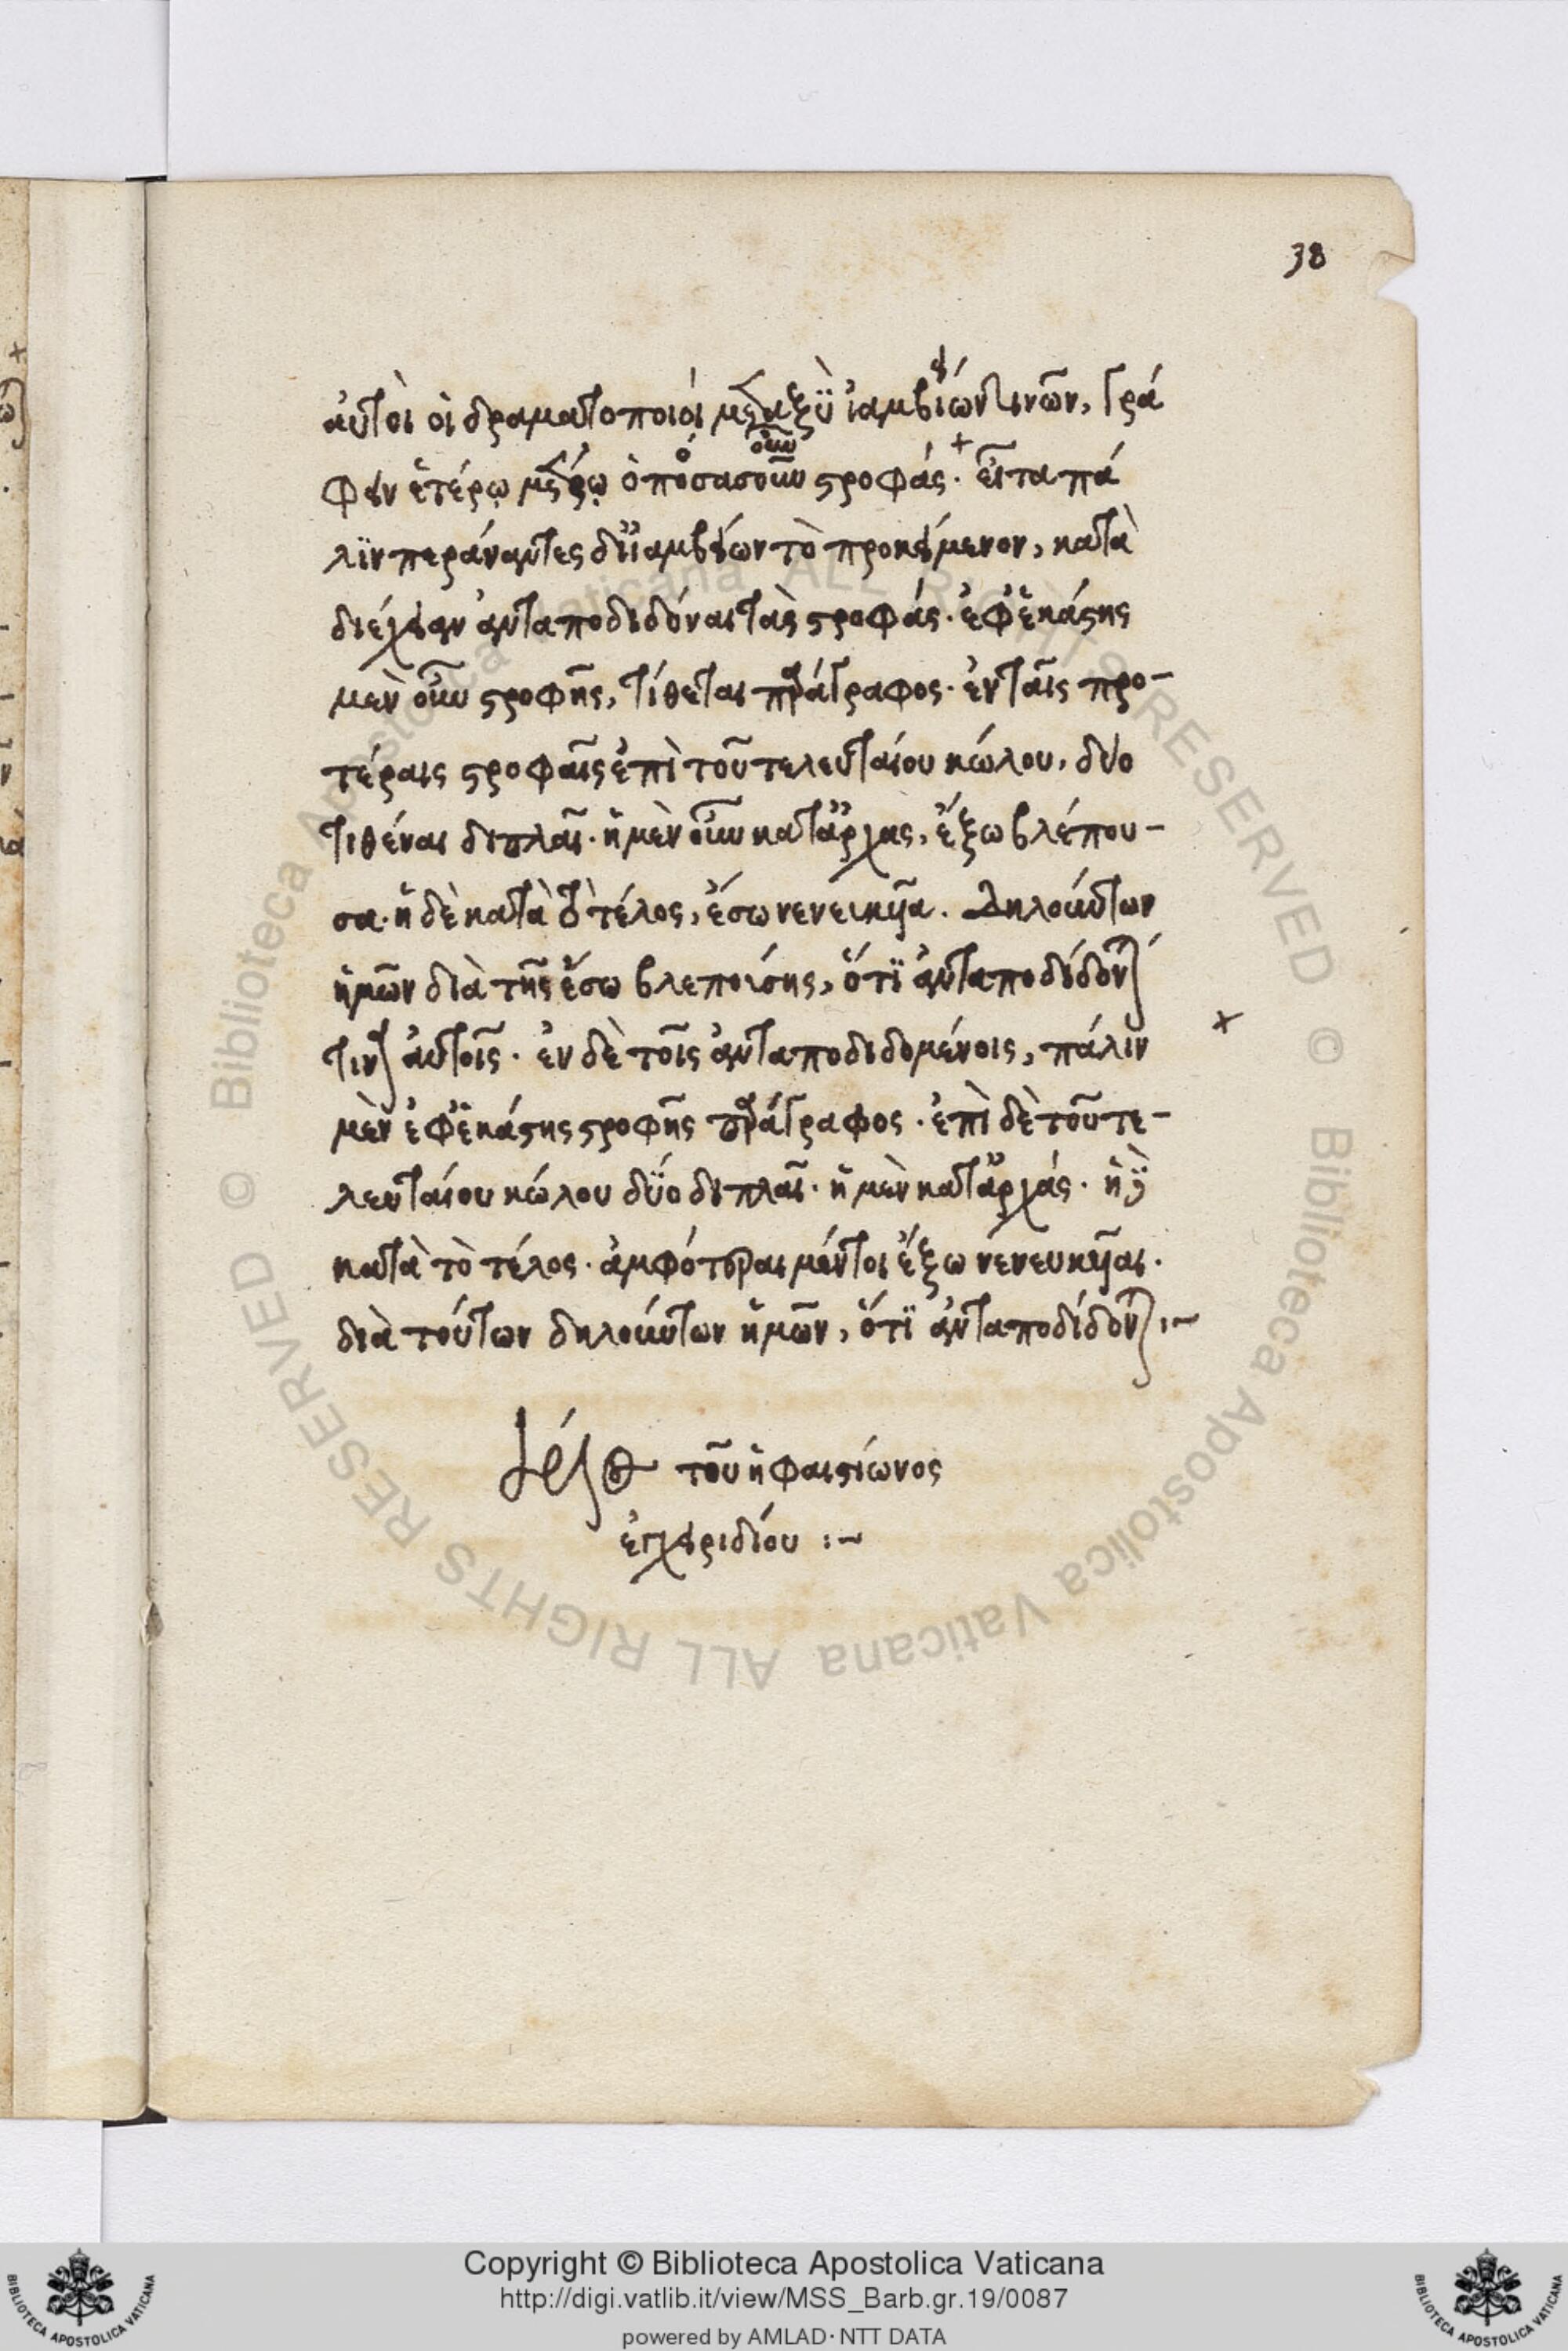 38
αὐτοὶ οἱ δραματοποιοὶ μεταξὺ ἰαμβίων τινῶν, γρά
φειν ἑτέρῳ μέτρῳ ὁποσασοῦν στροφάς. εἶτα πά
λϊν περάναντες δϊ ἰαμβείων τὸ προκείμενον, κατὰ
διέχειαν ἀνταποδιδόναι τὰς στροφάς. ἐφ ἑκάστης
μὲν οὖν στροφῆς, τίθεται παράγραφος. ἐν ταῖς προ-
τέραις στροφαῖς ἐπὶ τοῦ τελευταίου κώλου, δύο
τιθέναι διπλαῖ. ἡ μὲν οὖν κατ ἀρχὰς, ἔξω βλέπου-
σα. ἡ δὲ κατὰ τὸ τέλος, ἔσω νενεικυῖα. Δηλούντων
ἡμῶν διὰ τῆς ἔσω βλεπούσης, ὅτϊ ἀνταποδίδονται
τινα αὐτοῖς. ἐν δὲ τοῖς ἀνταποδιδομένοις, πάλιν
μὲν ἐφ ἑκάστης στροφῆς παράγραφος. ἐπὶ δὲ τοῦ τε-
λευταίου κώλου δύο διπλαῖ. ἡ μὲν κατ ἀρχάς. ἡ δὲ
κατὰ τὸ τέλος. ἀμφότεραι μέντοι ἔξω νενευκυῖαι.
διὰ τούτων δηλούντων ἡμῶν, ὅτϊ ἀνταποδίδονται :~
τέλος τοῦ ἡφαιστίωνος
ἐγχειριδίου :~
© Biblioteca Apostolica Vaticana ALL RIGHTS RESERVED © Biblioteca Apostolica Vaticana ALL RIGHTS RESERVED
Copyright © Biblioteca Apostolica Vaticana
http://digi.vatlib.it/view/MSS_Barb.gr.19/0087
powered by AMLAD·NTT DATA
BIBLIOTECA APOSTOLICA VATICANA
BIBLIOTECA APOSTOLICA VATICANA